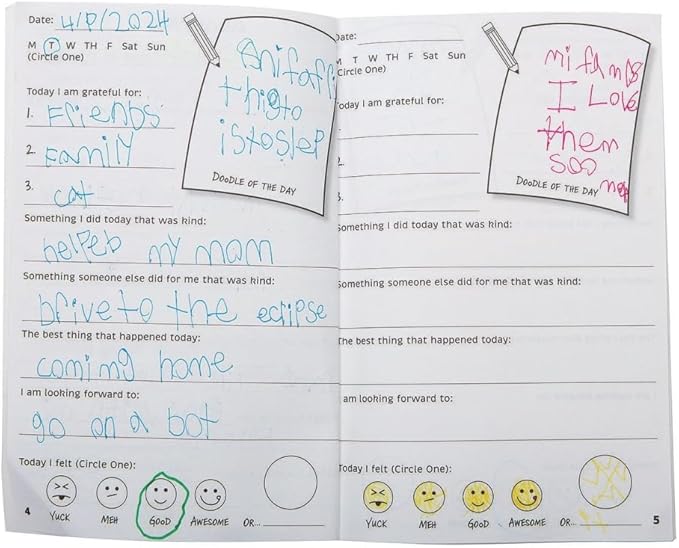 Date: 4/9/2024
M T W TH F Sat Sun
(Circle One)
Today I am grateful for:
1. Friends
2. Family
3. cat
thigto
istoslep
DOODLE OF THE DAY
Something I did today that was kind:
helpeb my mom
Something someone else did for me that was kind:
brive to the eclipse
The best thing that happened today:
coming home
I am looking forward to:
go on a bot
Today I felt (Circle One):
YUCK MEH GOOD AWESOME OR...
4
Date:
M T W TH F Sat Sun
Circle One)
Today I am grateful for:
2.
3.
mi
I Love
them
soo
DOODLE OF THE DAY
Something I did today that was kind:
Something someone else did for me that was kind:
The best thing that happened today:
am looking forward to:
Today I felt (Circle One):
YUCK MEH GOOD AWESOME OR...
5